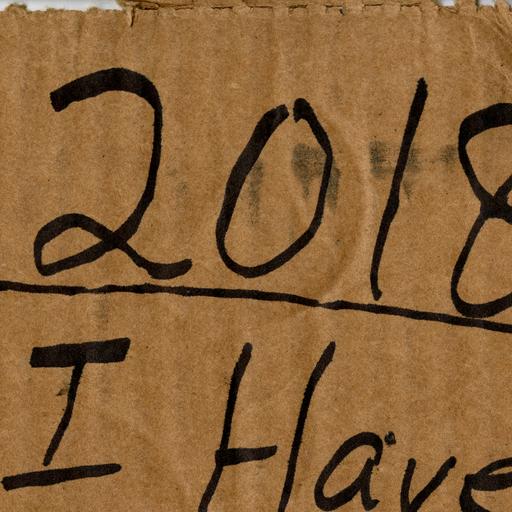 2018
I Have